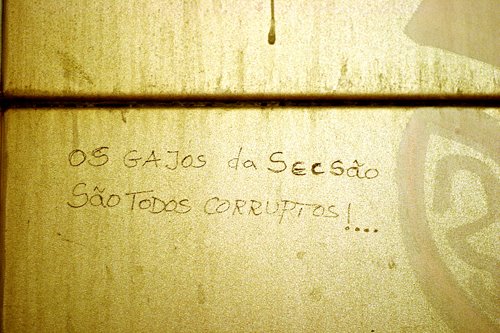 OS GAJOS da SECSão
São TODOS CORRUPTOS!....